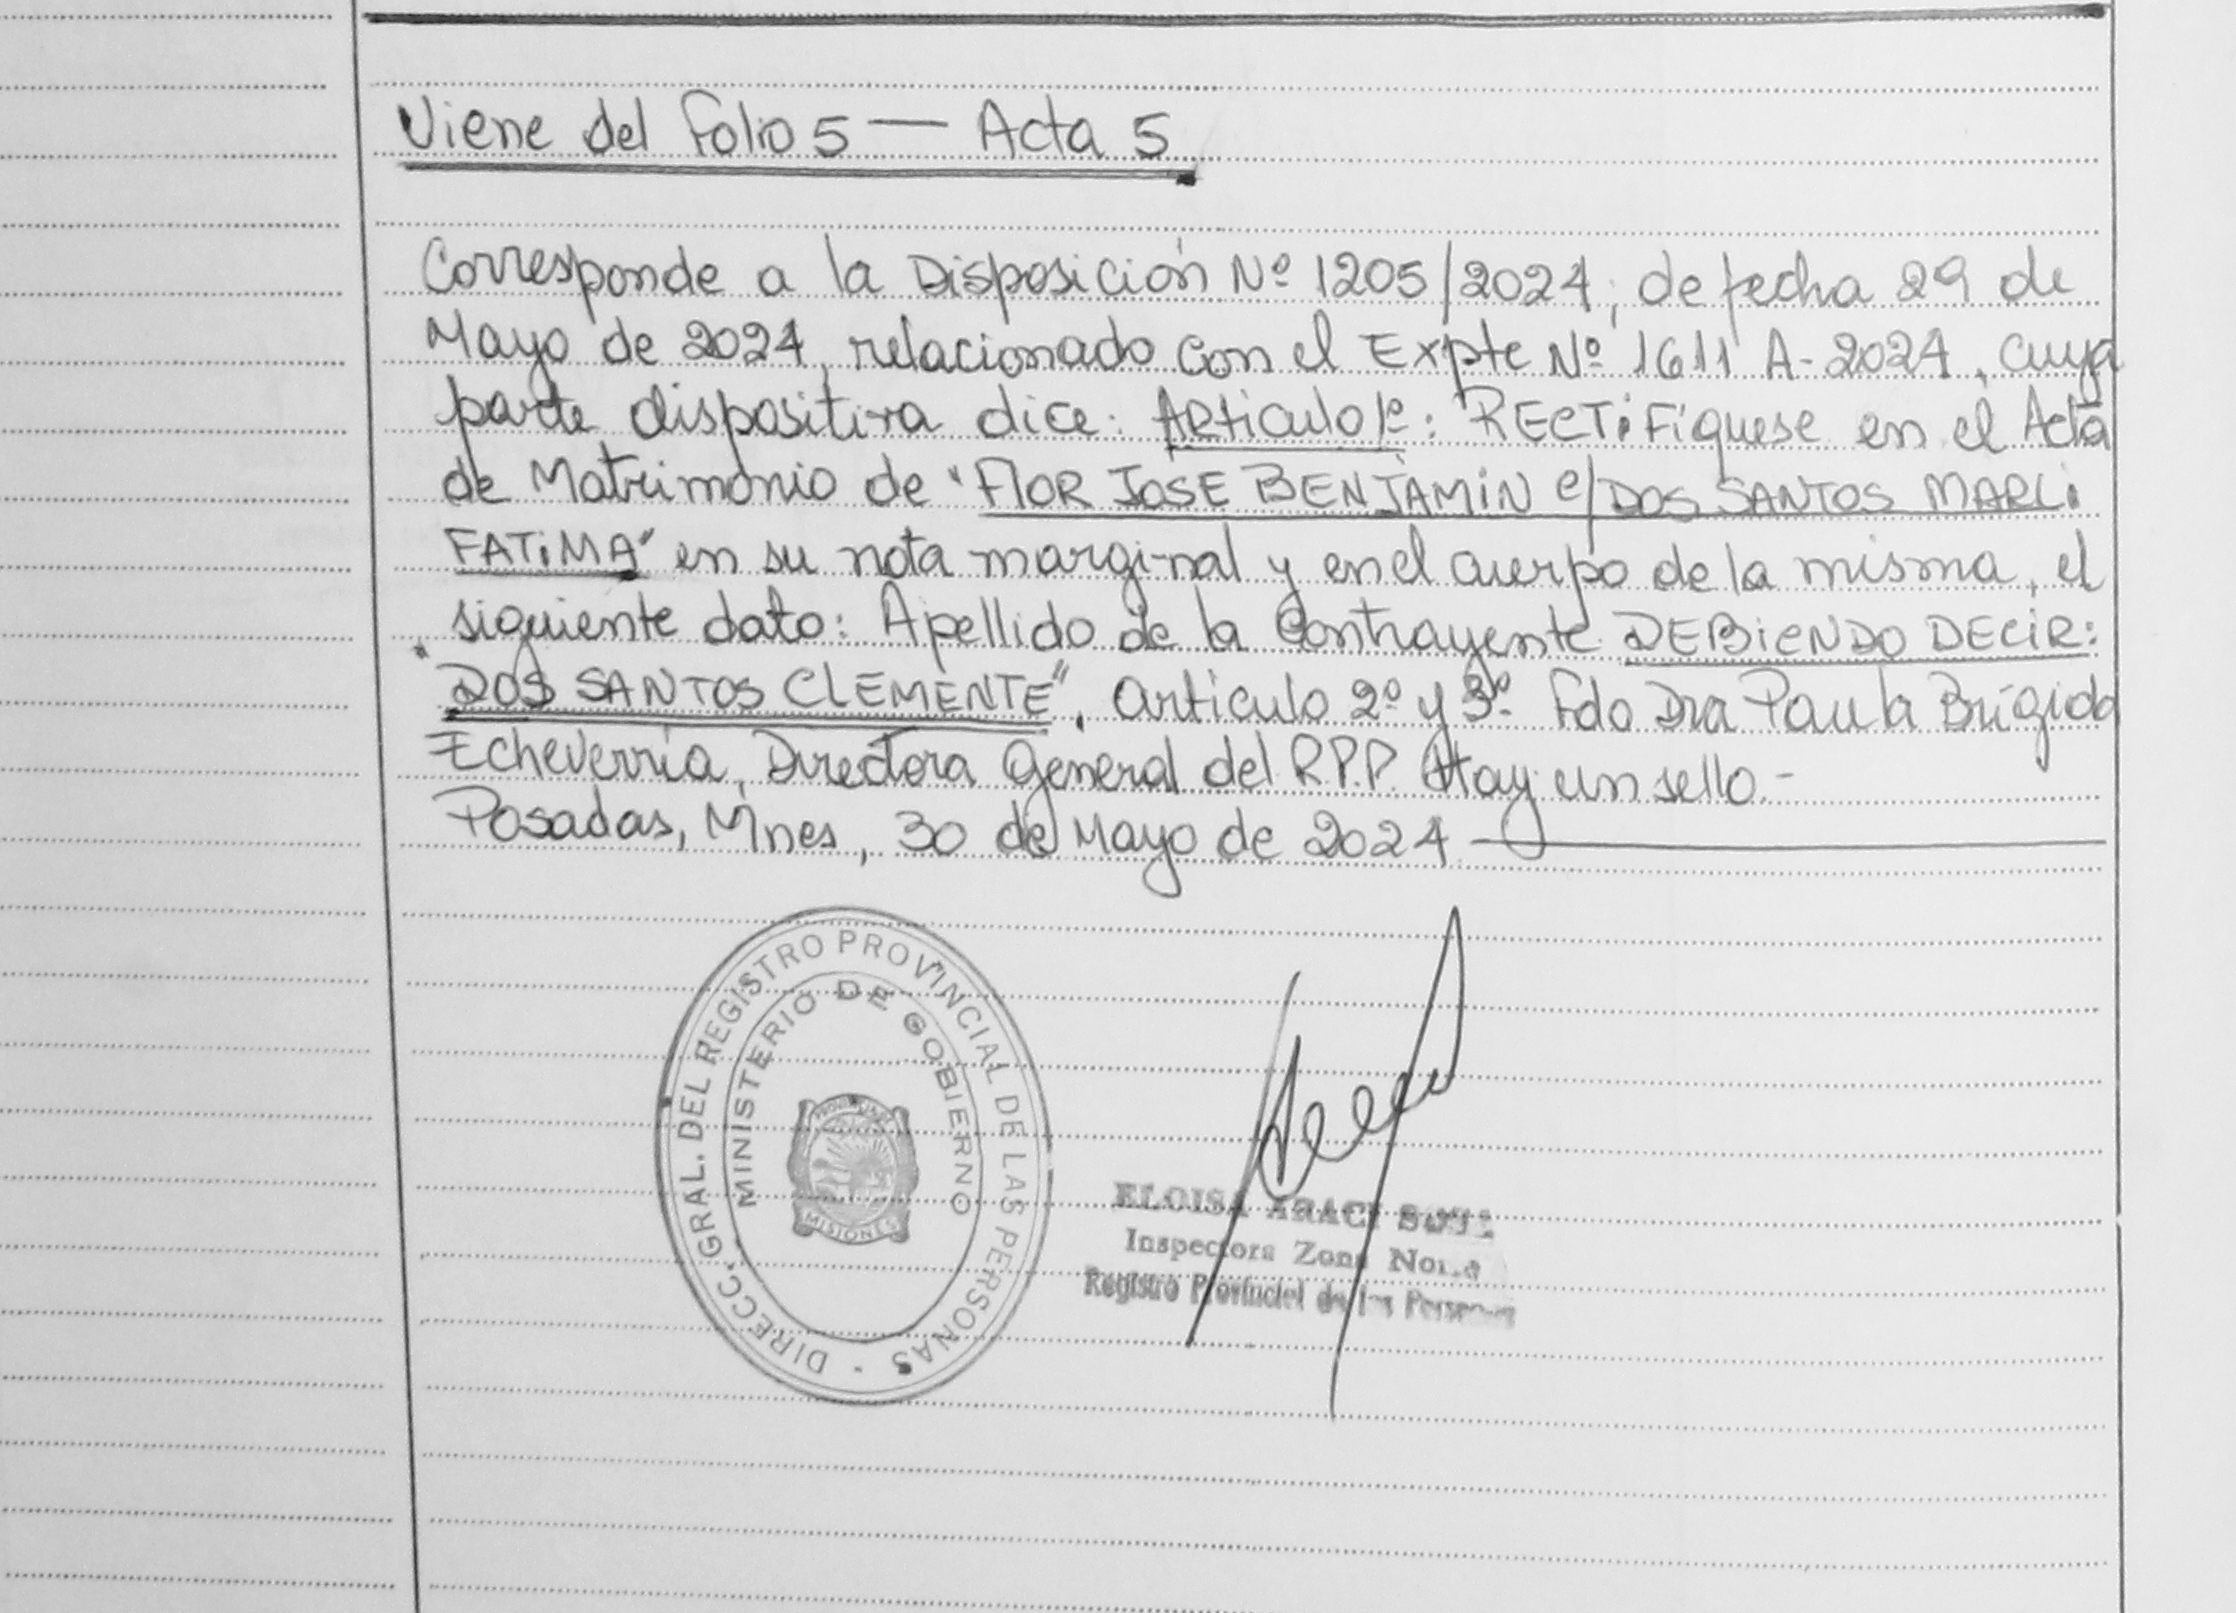 Viene del Folio 5 — Acta 5
Corresponde a la Disposición Nº 1205/2024, de fecha 29 de
Mayo de 2024, relacionado con el Expte Nº 1611 A-2024, cuya
parte dispositiva dice: Articulo 1º: RECTiFíquese en el Acta
de Matrimonio de "FlOR JOSE BENJAMiN c/ DOS SANTOS MARLi
FATiMA" en su nota marginal y en el cuerpo de la misma, el
siguiente dato: Apellido de la Contrayente DEBiENDO DECiR:
"DOS SANTOS CLEMENTE", Articulo 2º y 3º. Fdo Dra Paula Brígida
Echeverría, Directora General del R.P.P. Hay un sello.-
Posadas, Mnes, 30 de Mayo de 2024
DIRECC. GRAL. DEL REGISTRO PROVINCIAL DE LAS PERSONAS
MINISTERIO DE GOBIERNO
MISIONES
ELOISA ARACI
Inspectora Zona
Registro Provincial de las Personas